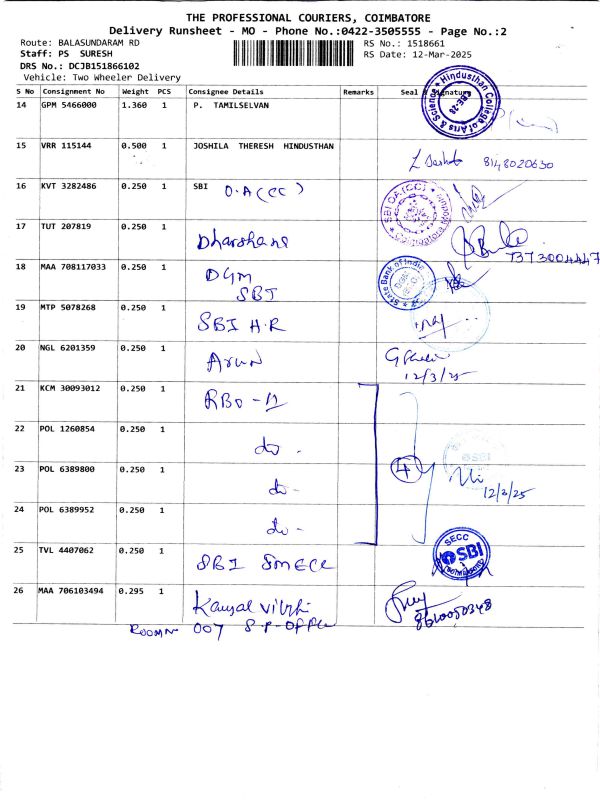 THE PROFESSIONAL COURIERS, COIMBATORE
Delivery Runsheet - MO - Phone No.:0422-3505555 - Page No.:2
Route: BALASUNDARAM RD
RS No.: 1518661
Staff: PS SURESH
RS Date: 12-Mar-2025
DRS No.: DCJB151866102
Vehicle: Two Wheeler Delivery
S No Consignment No Weight PCS Consignee Details Remarks Seal & Signature
14 GPM 5466000 1.360 1 P. TAMILSELVAN
Hindusthan College of Arts & Science
CBE-28
15 VRR 115144 0.500 1 JOSHILA THERESH HINDUSTHAN
8148020630
16 KVT 3282486 0.250 1 SBI O.A (CC)
SBI OA (CC)
17 TUT 207819 0.250 1 Dharshane
7373004447
18 MAA 708117033 0.250 1 DGM
SBI
State Bank of India
19 MTP 5078268 0.250 1 SBI H.R
20 NGL 6201359 0.250 1 Arun
12/3/25
21 KCM 30093012 0.250 1 RBO - II
22 POL 1260854 0.250 1 do -
23 POL 6389800 0.250 1 do -
4
SBI
12/3/25
24 POL 6389952 0.250 1 do -
25 TVL 4407062 0.250 1 SBI SMECC
SECC
SBI
26 MAA 706103494 0.295 1 Kausal Vizhi
8610050348
ROOM N 007 S.P-OFFICE